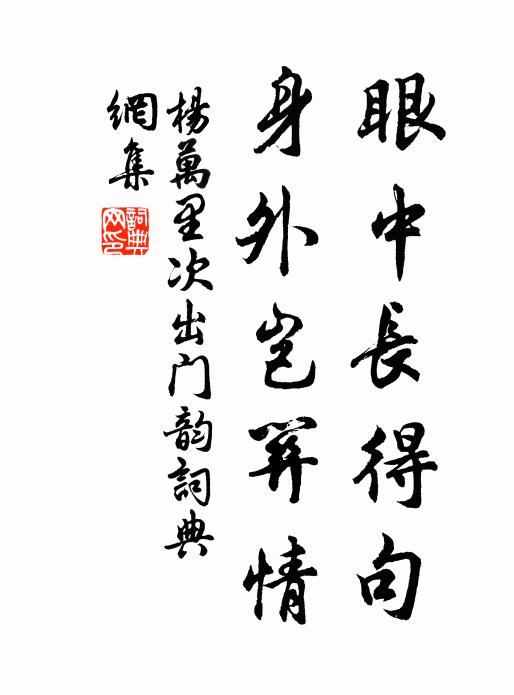 眼中長得句
身外豈關情
楊萬里次出门韵詞典
網集
詞典
网印